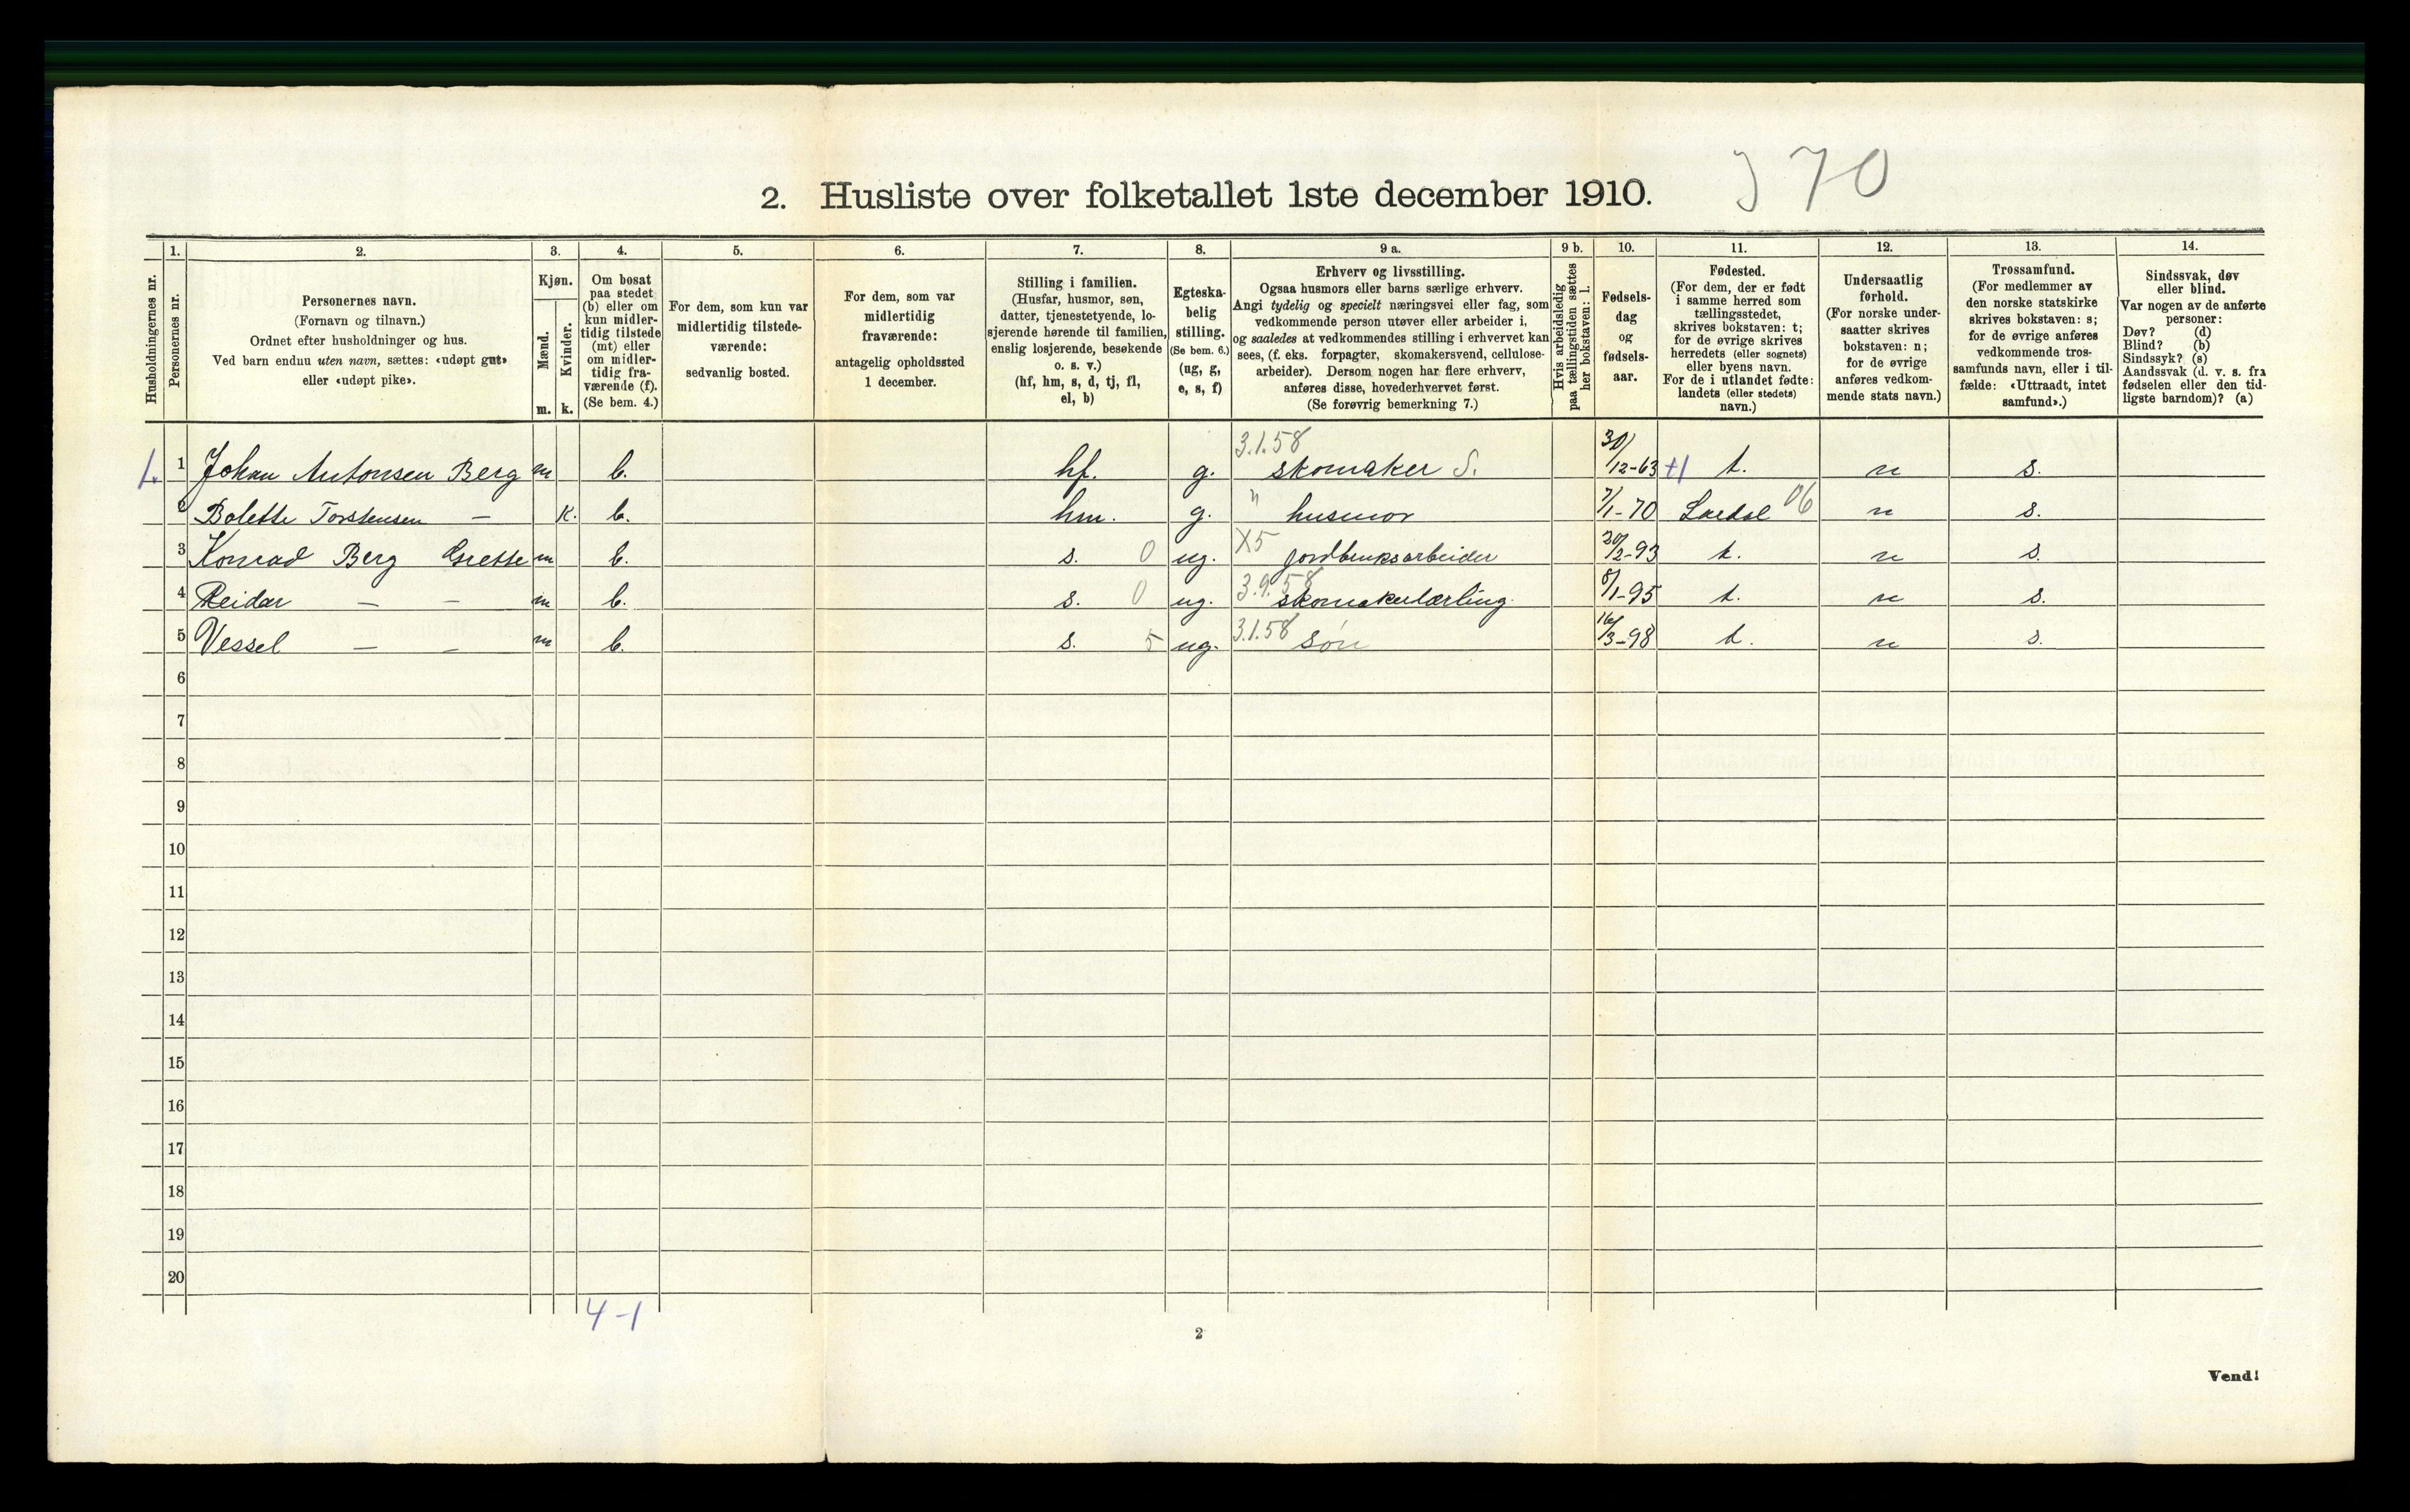 2. Husliste over folketallet 1ste december 1910.
J 70
Husholdningernes nr.
1.
Personernes nr.
2.
Personernes navn.
(Fornavn og tilnavn.)
Ordnet efter husholdninger og hus.
Ved barn endnu uten navn, sættes: «udøpt gut»
eller «udøpt pike».
3.
Kjøn.
Mænd.
m.
Kvinder.
k.
4.
Om bosat
paa stedet
(b) eller om
kun midler-
tidig tilstede
(mt) eller
om midler-
tidig fra-
værende (f).
(Se bem. 4.)
5.
For dem, som kun var
midlertidig tilstede-
værende:
sedvanlig bosted.
6.
For dem, som var
midlertidig
fraværende:
antagelig opholdssted
1 december.
7.
Stilling i familien.
(Husfar, husmor, søn,
datter, tjenestetyende, lo-
sjerende hørende til familien,
enslig losjerende, besøkende
o. s. v.)
(hf, hm, s, d, tj, fl,
el, b)
8.
Egteska-
belig
stilling.
(Se bem. 6.)
(ug, g,
e, s, f)
9 a.
Erhverv og livsstilling.
Ogsaa husmors eller barns særlige erhverv.
Angi tydelig og specielt næringsvei eller fag, som
vedkommende person utøver eller arbeider i,
og saaledes at vedkommendes stilling i erhvervet kan
sees, (f. eks. forpagter, skomakersvend, cellulose-
arbeider). Dersom nogen har flere erhverv,
anføres disse, hovederhvervet først.
(Se forøvrig bemerkning 7.)
9 b.
Hvis arbeidsledig
paa tællingstiden sættes
her bokstaven: l.
10.
Fødsels-
dag
og
fødsels-
aar.
11.
Fødested.
(For dem, der er født
i samme herred som
tællingsstedet,
skrives bokstaven: t;
for de øvrige skrives
herredets (eller sognets)
eller byens navn.
For de i utlandet fødte:
landets (eller stedets)
navn.)
12.
Undersaatlig
forhold.
(For norske under-
saatter skrives
bokstaven: n;
for de øvrige
anføres vedkom-
mende stats navn.)
13.
Trossamfund.
(For medlemmer av
den norske statskirke
skrives bokstaven: s;
for de øvrige anføres
vedkommende tros-
samfunds navn, eller i til-
fælde: «Uttraadt, intet
samfund».)
14.
Sindssvak, døv
eller blind.
Var nogen av de anførte
personer:
Døv? (d)
Blind? (b)
Sindssyk? (s)
Aandssvak (d. v. s. fra
fødselen eller den tid-
ligste barndom)? (a)
1. 1 Johan Antonsen Berg m b. hf. g. 3.1.58 skomaker S. 30/12-63 +1 t. n s.
2 Bolette Torstensen — K. b. hm. g. " husmor 7/1-70 Lærdal 06 n s.
3 Konrad Berg Grette m b. s. 0 ug. X5 jordbruksarbeider 20/2-93 t. n s.
4 Reidar — — m b. s. 0 ug. 3.9.58 skomakerlærling. 8/1-95 t. n s.
5 Vessel — — m b. s. 5 ug. 3.1.58 søn 16/3-98 t. n s.
6
7
8
9
10
11
12
13
14
15
16
17
18
19
20
4-1
2
Vend!